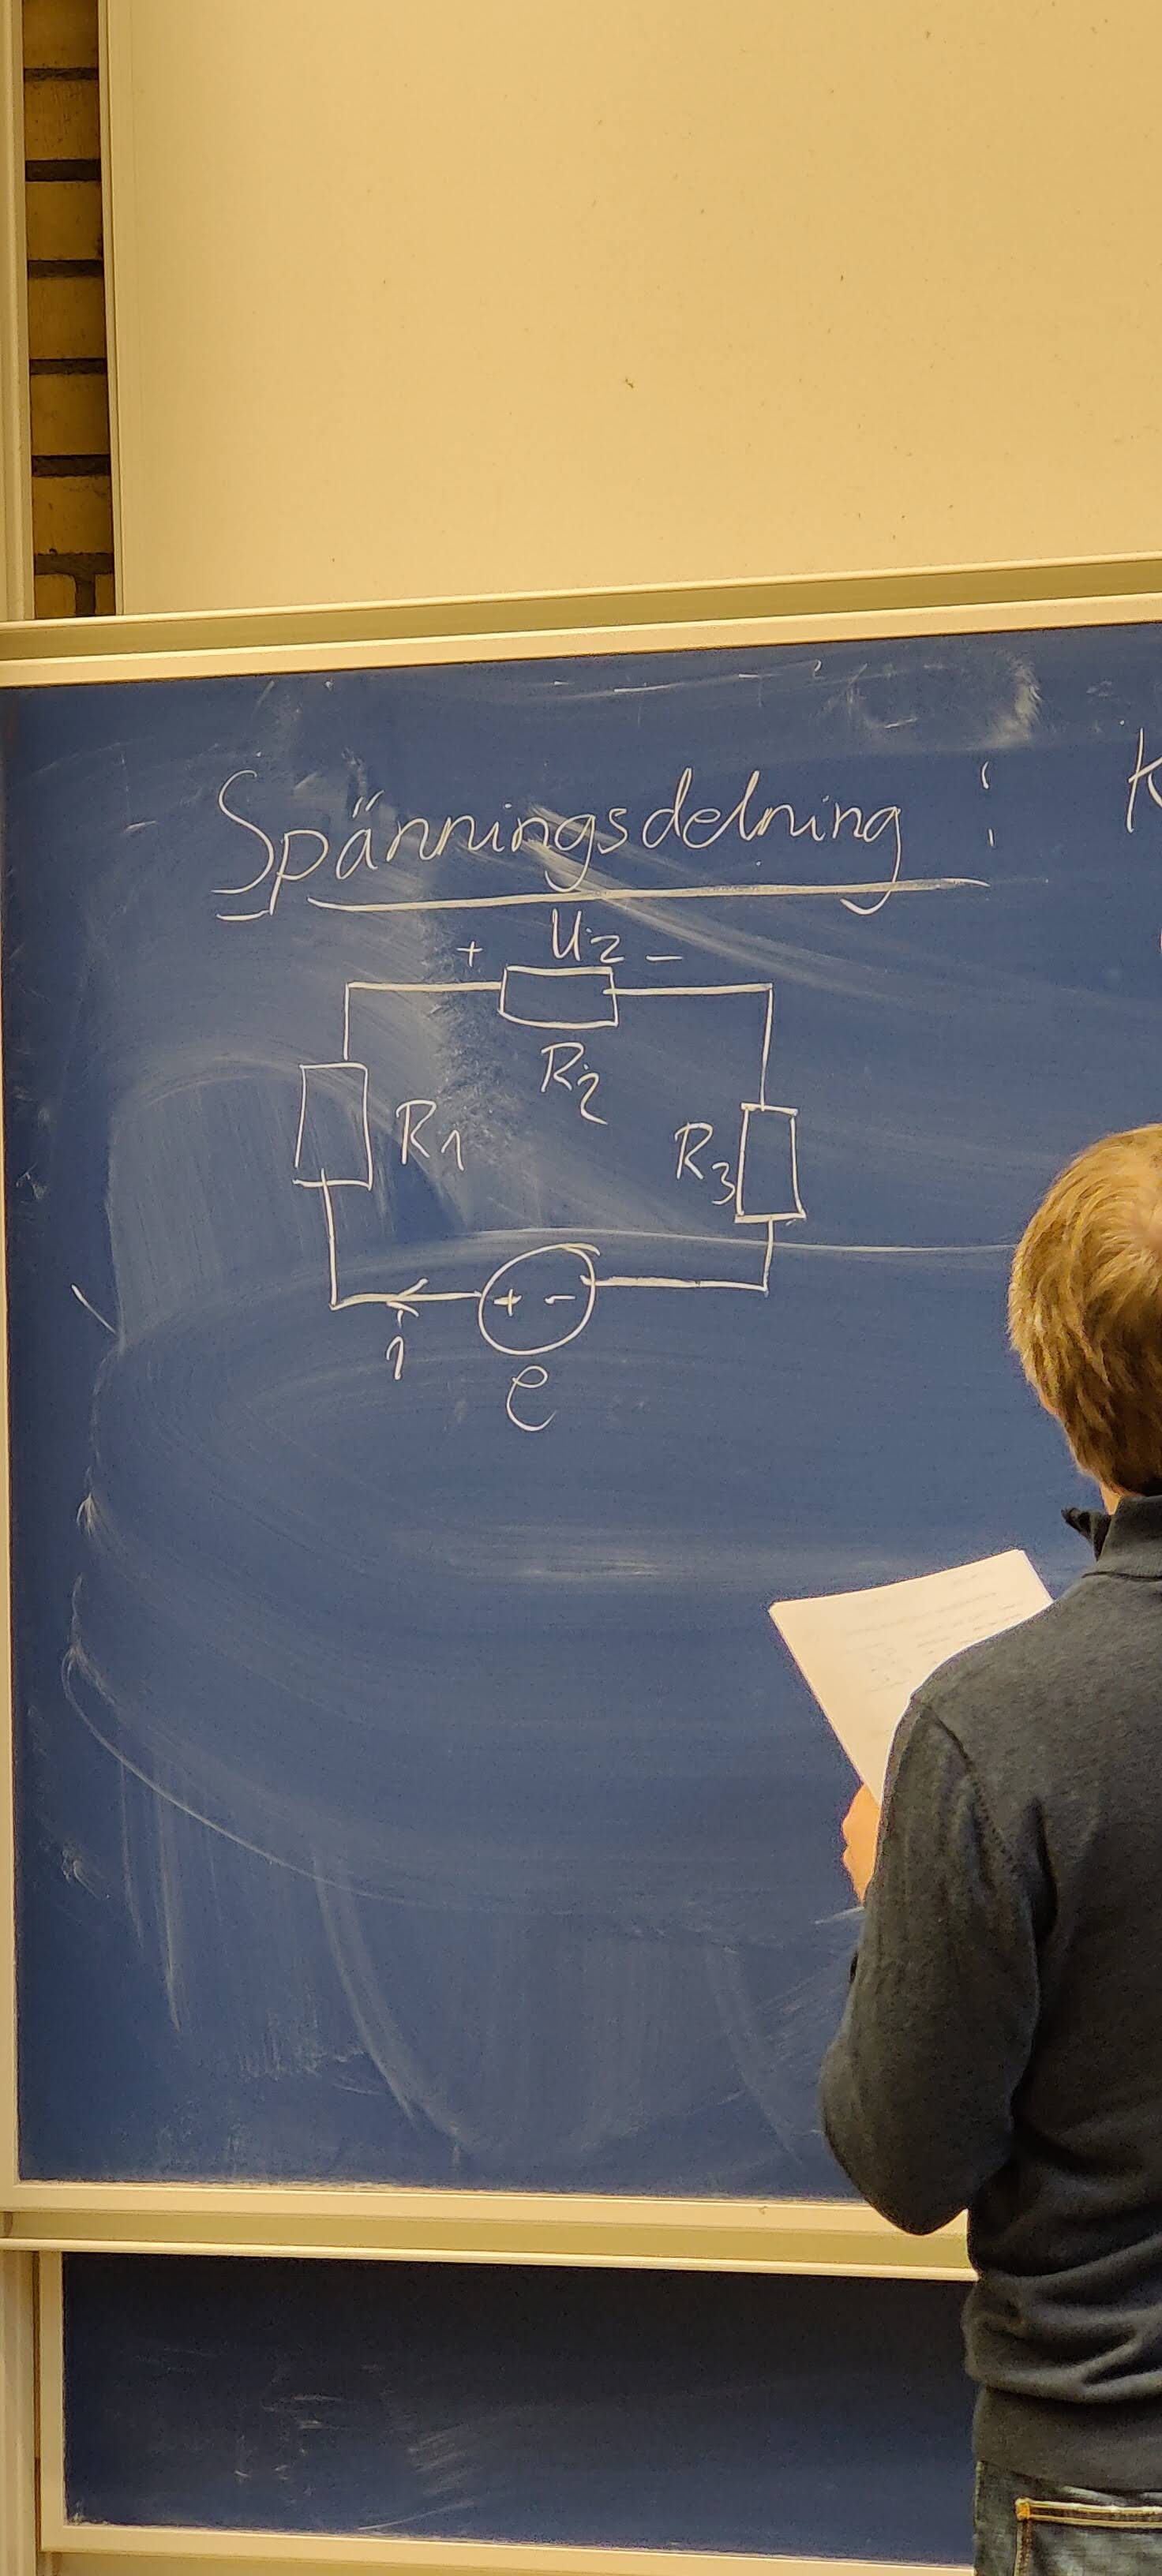 Spänningsdelning :
K
+ U2 -
R2
R1
R3
+ -
i
e